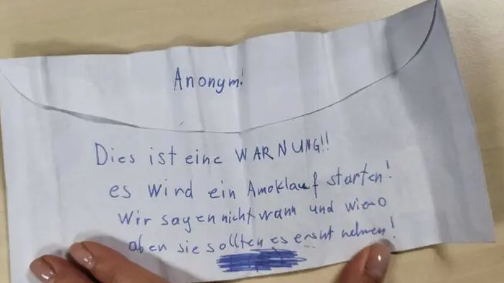 Anonym!
Dies ist eine WARNUNG!!
es wird ein Amoklauf starten!
Wir sagen nicht wann und wieso
aber sie sollten es ernst nehmen!